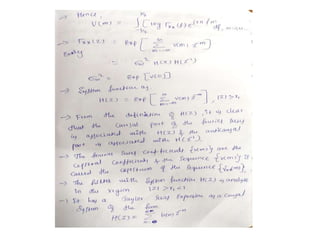 → Hence,
V(m) = ∫ [log Γxx(f)] e^{j2πfm} df, m=±1...
→ Γxx(z) = exp [ Σ v(m) z^-m ]
m=-∞
= σω² H(z) H(z⁻¹)
σω² = exp [v(0)]
→ System function by
H(z) = exp [ Σ v(m) z^-m ], |z|>r₁
→ From the definition of H(z), it is clear
that the causal part of the fourier series
is associated with H(z) & the anticausal
part is associated with H(z⁻¹).
→ The fourier series coefficients {v(m)} are the
cepstral coefficients & the sequence {v(m)} is
called the cepstrum of the sequence {γxx(m)}.
→ The filter with system function H(z) is analytic
in the region |z| > r₁ < 1
→ It has a Taylor series expansion as a causal
system of the form
H(z) = Σ h(n) z^-n